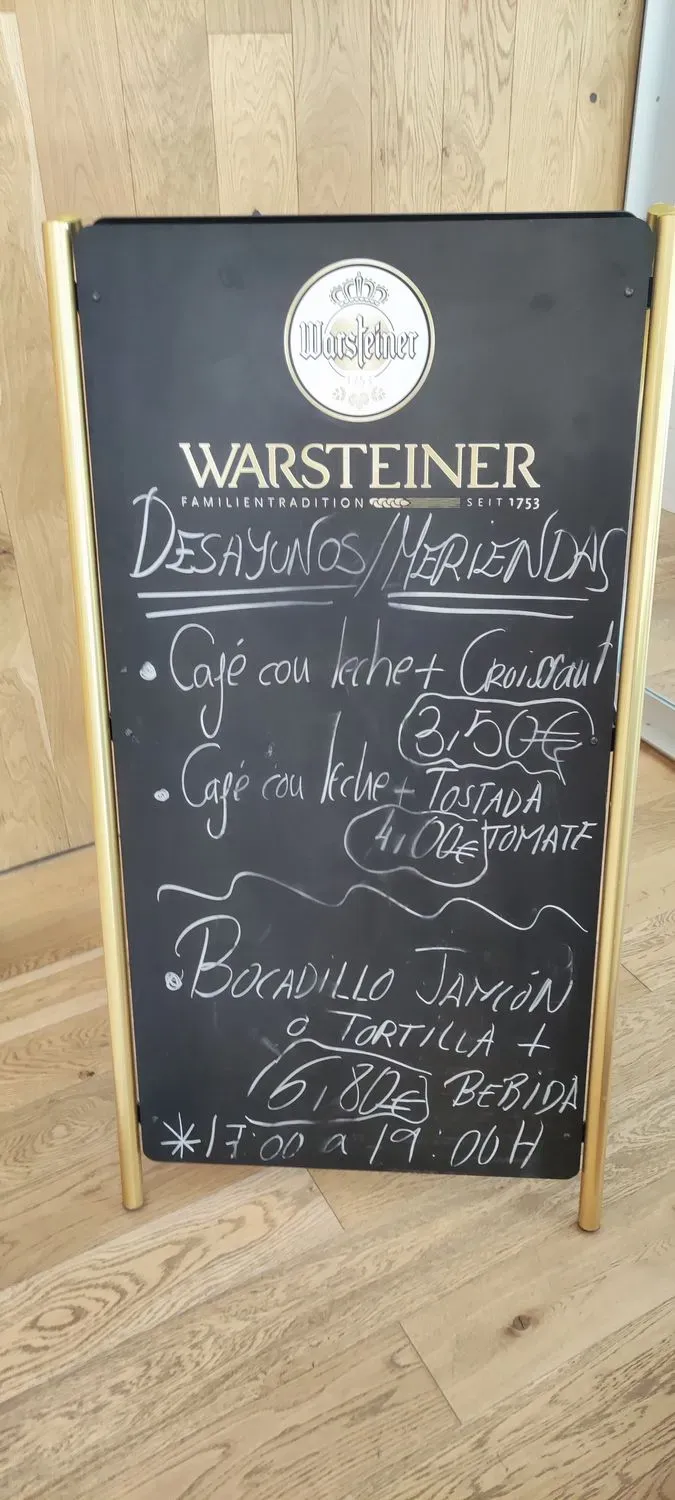 Warsteiner
1753
WARSTEINER
FAMILIENTRADITION SEIT 1753
DESAYUNOS/MERIENDAS
• Café con leche + Croissant
3,50€
• Café con leche + TOSTADA
4,00€ TOMATE
• BOCADILLO JAMÓN
O TORTILLA +
6,80€ BEBIDA
*17:00 a 19:00H